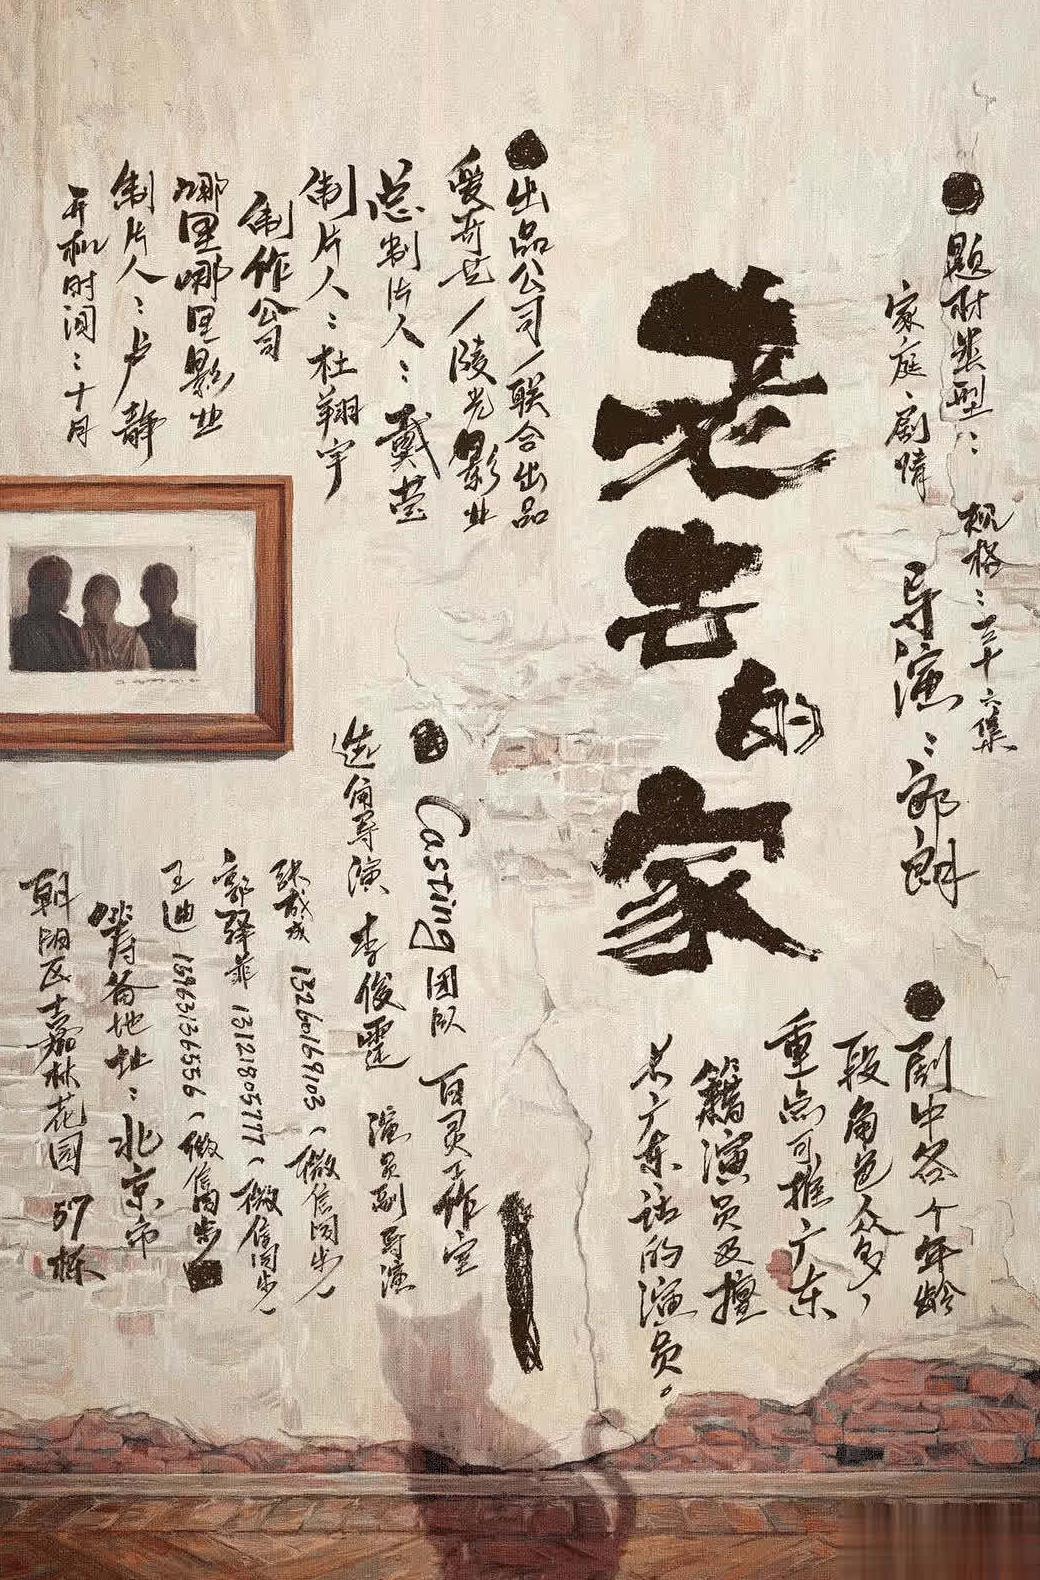 ●题材类型：
家庭、剧情
规格：三十六集
导演：郎朗
老去的家
●剧中各个年龄
段角色众多，
重点可推广东
籍演员及擅
长广东话的演员。
●出品公司/联合出品
爱奇艺/陵光影业
总制片人：戴莹
制片人：杜翔宇
制作公司
哪里哪里影业
制片人：卢静
开机时间：十月
●Casting团队 百灵工作室
选角导演 李俊霆 演员副导演
13260169103(微信同步)
郭驿菲 13121805777(微信同步)
王迪 13963136556(微信同步
筹备地址：北京市
朝阳区嘉林花园57栋